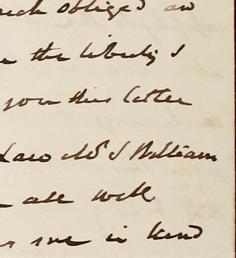 obliged and
the liberty I
you this letter
Law Mr J William
all well
me in kind